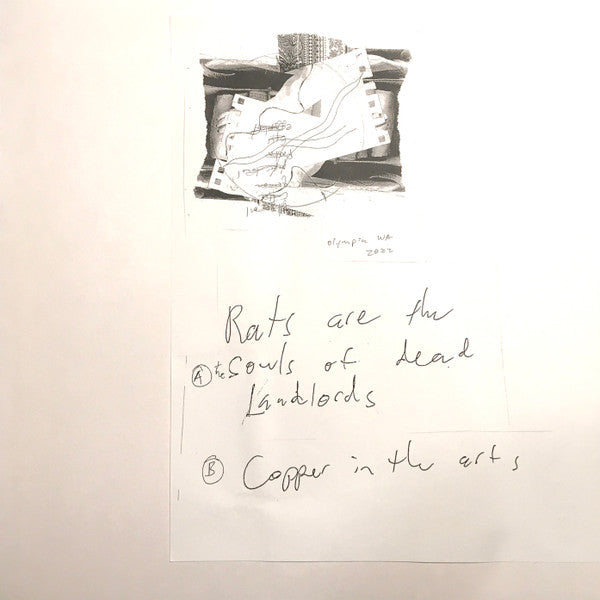 olympia WA
2022
Rats are the
Ⓐ the Souls of dead
Landlords
Ⓑ Copper in the arts